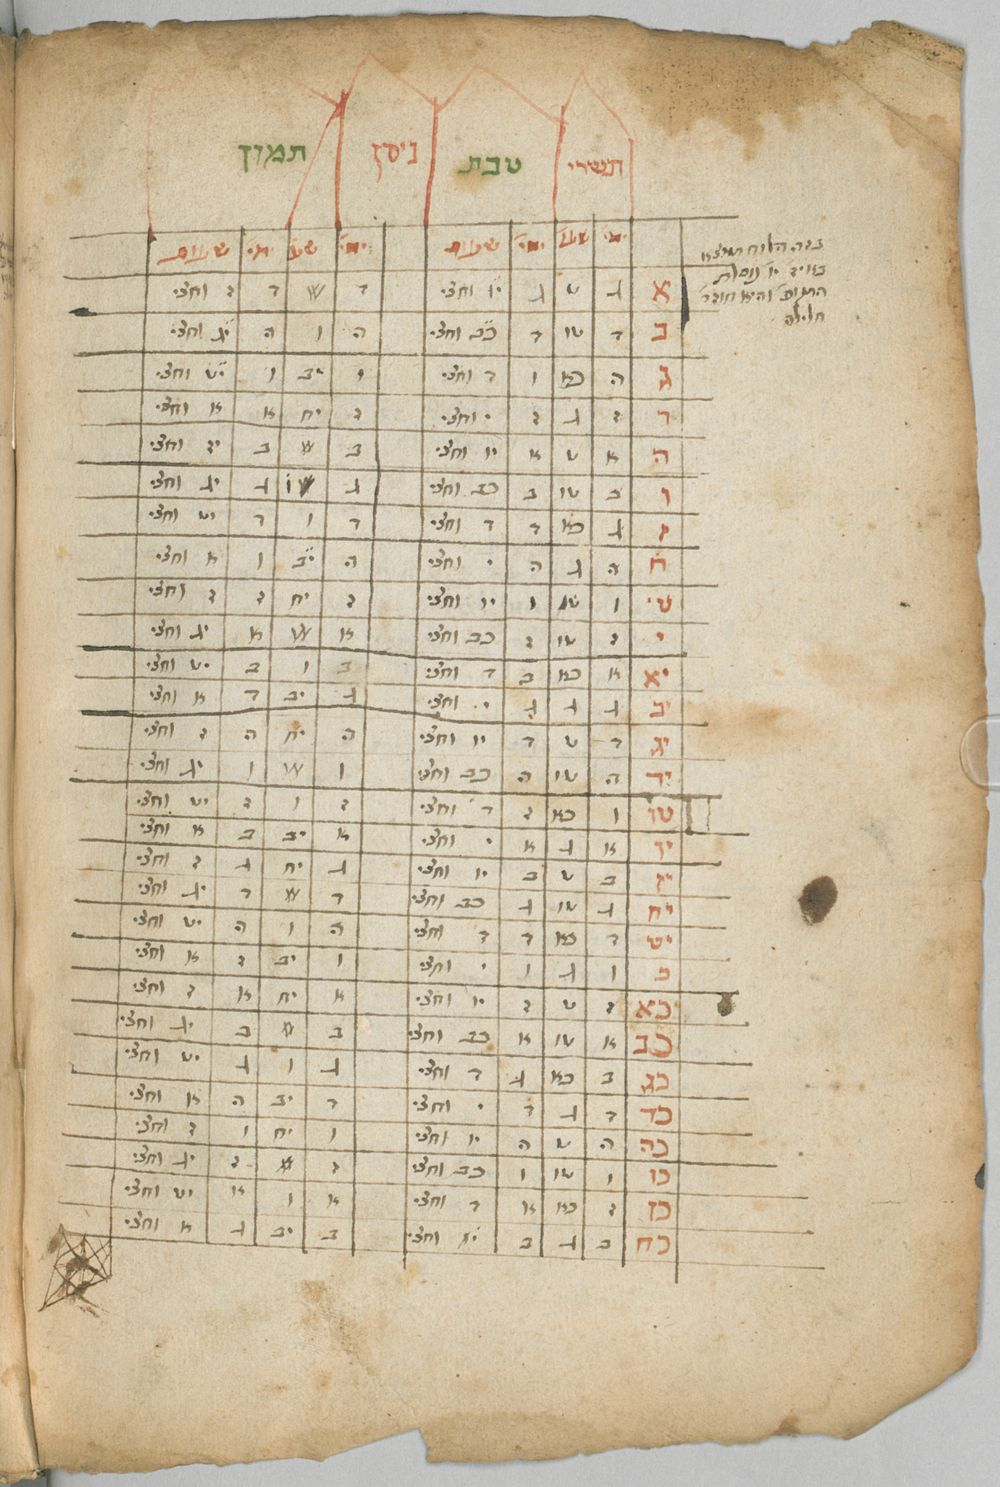 תשרי טבת ניסן תמוז
ימי שעו ימי שעות ימי שע ימי שעות
בזה הלוח תמצא
באיזה יו' נופלת
התקופ' והיא חוזר'
חלילה
א ג ט ג יו וחצי ד ד ז וחצי
ב ד טו ד כב וחצי ה ו ה יג וחצי
ג ה כא ו ד וחצי ו יב ו יט וחצי
ד ז ג ז י וחצי ז יח א א וחצי
ה א ט א יו וחצי ב ב ז וחצי
ו ב טו ב כב וחצי ג ג יג וחצי
ז ג כא ד ד וחצי ד ו ד יט וחצי
ח ה ג ה י וחצי ה יב ו א וחצי
ט ו ט ו יו וחצי ז יח ז ז וחצי
י ז טו ז כב וחצי א א יג וחצי
יא א כא ב ד וחצי ב ו ב יט וחצי
יב ג ג ג י וחצי ג יב ד א וחצי
יג ד ט ד יו וחצי ה יח ה ז וחצי
יד ה טו ה כב וחצי ו ו יג וחצי
טו ו כא ז ד וחצי ז ו ז יט וחצי
יו א ג א י וחצי א יב ב א וחצי
יז ב ט ב יו וחצי ג יח ג ז וחצי
יח ג טו ג כב וחצי ד ד יג וחצי
יט ד כא ד ד וחצי ה ו ה יט וחצי
כ ו ג ו י וחצי ו יב ז א וחצי
כא ז ט ז יו וחצי א יח א ז וחצי
כב א טו א כב וחצי ב ב יג וחצי
כג ב כא ג ד וחצי ג ו ג יט וחצי
כד ד ג ד י וחצי ד יב ה א וחצי
כה ה ט ה יו וחצי ו יח ו ז וחצי
כו ו טו ו כב וחצי ז ז יג וחצי
כז ז כא א ד וחצי א ו א יט וחצי
כח ב ג ב י וחצי ב יב ג א וחצי